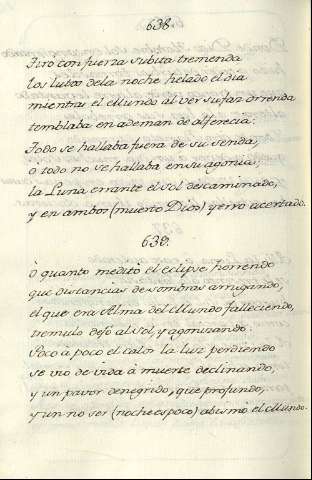 638.
Tiro con fuerza subita tremenda
los lutos dela noche helado el dia
mientras el Mundo al ver su faz orrenda
temblaba en ademan de alferecia:
Todo se hallaba fuera de su senda,
ò todo no se hallaba en su agonia;
la Luna errante el Sol descaminado,
y en ambos (muerto Dios) yerro acertado.
639.
Ò quanto meditò el eclipse horrendo
que distancias de sombras arrugando,
el que era Alma del Mundo falleciendo,
tremulo dejò al Sol, y agonizando.
Poco à poco el calor la luz perdiendo
se vio de vida à muerte declinando,
y un pavor denegrido, que profundo,
y un no ser (noche es poco) abismò el Mundo.